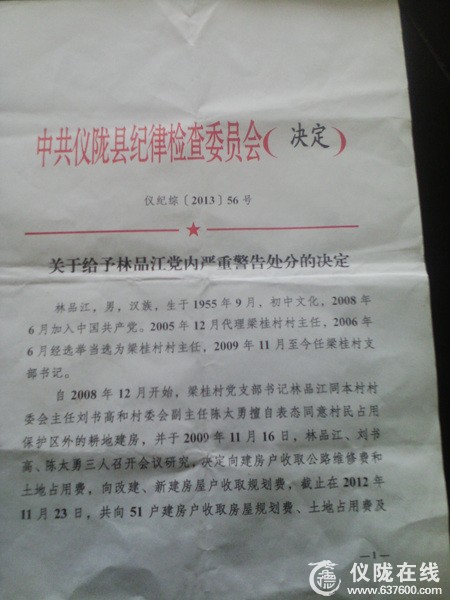 中共仪陇县纪律检查委员会(决定)
仪纪综〔2013〕56号
关于给予林品江党内严重警告处分的决定
林品江，男，汉族，生于1955年9月，初中文化，2008年
6月加入中国共产党。2005年12月代理梁桂村村主任，2006年
6月经选举当选为梁桂村村主任，2009年11月至今任梁桂村支
部书记。
自2008年12月开始，梁桂村党支部书记林品江同本村村
委会主任刘书高和村委会副主任陈太勇擅自表态同意村民占用
保护区外的耕地建房，并于2009年11月16日，林品江、刘书
高、陈太勇三人召开会议研究，决定向建房户收取公路维修费和
土地占用费，向改建、新建房屋户收取规划费，截止在2012年
11月23日，共向51户建房户收取房屋规划费、土地占用费及
—1—
仪陇在线
www.637600.com